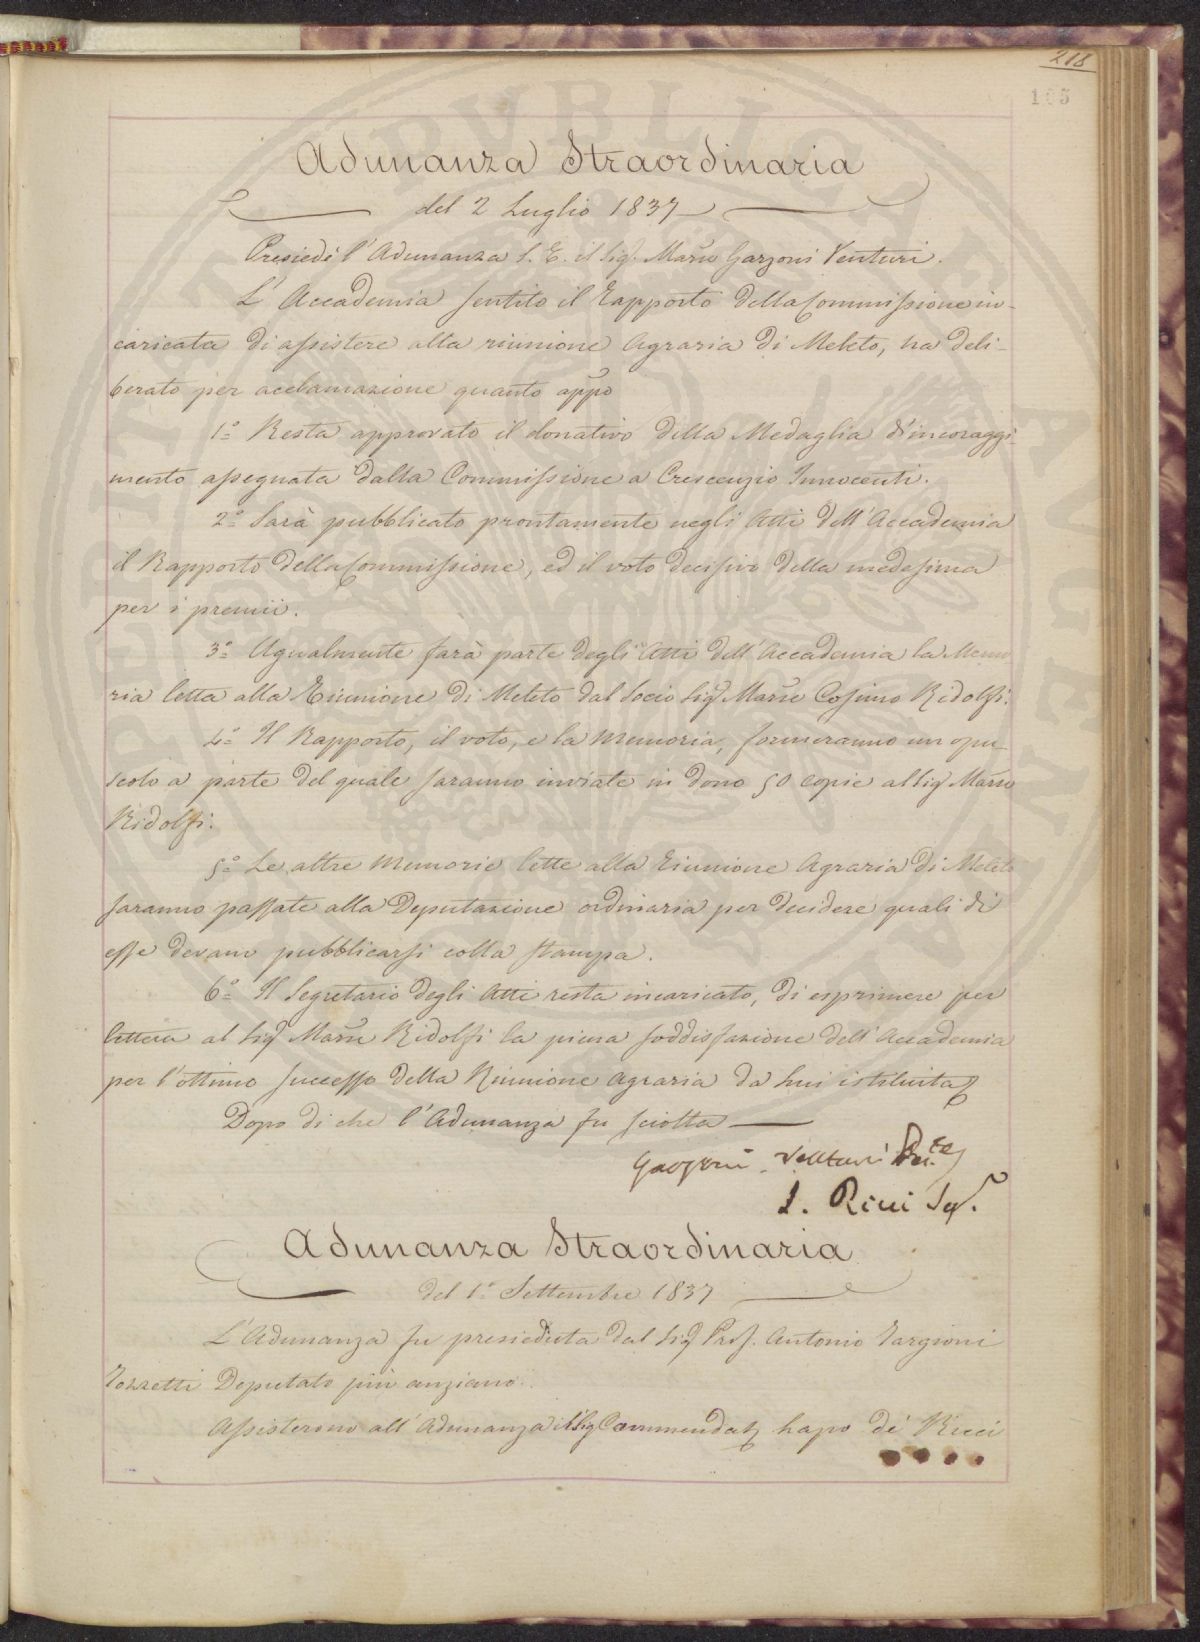 218
105
Adunanza Straordinaria
del 2 Luglio 1837
Presiedè l'Adunanza S. E. il Sig. March Garzoni Venturi.
L'Accademia sentito il Rapporto della Commissione in-
caricata di assistere alla riunione Agraria di Meleto, ha deli-
berato per acclamazione quanto appo
1.° Resta approvato il donativo della Medaglia d'incoraggi-
mento assegnata dalla Commissione a Crescenzio Innocenti.
2.° Sarà pubblicato prontamente negli Atti dell'Accademia
il Rapporto della Commissione, ed il voto decisivo della medesima
per i premii.
3.° Ugualmente farà parte degli Atti dell'Accademia la Memo
ria letta alla Riunione di Meleto dal Socio Sig. Marse Cosimo Ridolfi.
4.° Il Rapporto, il voto, e la Memoria, formeranno un opu-
scolo a parte del quale saranno inviate in dono 50 copie al Sig. Marse
Ridolfi.
5.° Le altre Memorie lette alla Riunione Agraria di Meleto
saranno passate alla Deputazione ordinaria per decidere quali di
esse devano pubblicarsi colla stampa.
6.° Il Segretario degli Atti resta incaricato, di esprimere per
lettera al Sig. Marse Ridolfi la piena soddisfazione dell'Accademia
per l'ottimo successo della Riunione Agraria da Lui istituita
Dopo di che l'Adunanza fu sciolta
Garzoni Venturi Pres.te
L. Ricci Seg.
Adunanza Straordinaria
del 1.° Settembre 1837
L'Adunanza fu presieduta dal Sig. Prof. Antonio Targioni
Tozzetti Deputato più anziano.
Assisterono all'Adunanza il Sig Commendat Lapo de' Ricci